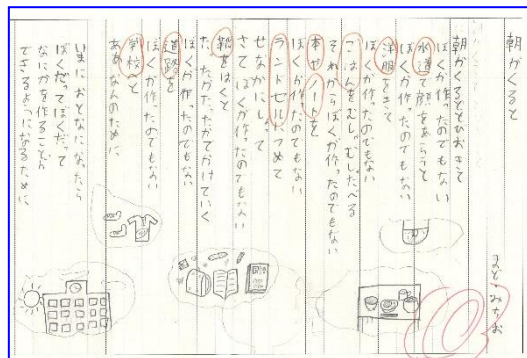 朝がくると
まど・みちお
朝がくるととびおきて
ぼくが作ったのでもない
水道で顔をあらうと
ぼくが作ったのでもない
洋服をきて
ぼくが作ったのでもない
ごはんをむしゃむしゃたべる
それからぼくが作ったのでもない
本やノートを
ぼくが作ったのでもない
ランドセルにつめて
せなかにしょって
さて ぼくが作ったのでもない
靴をはくと
たったかたったかでかけていく
ぼくが作ったのでもない
道路を
ぼくが作ったのでもない
学校へと
ああ なんのために
いまに おとなになったら
ぼくだって ぼくだって
なにかを作ることが
できるようになるために